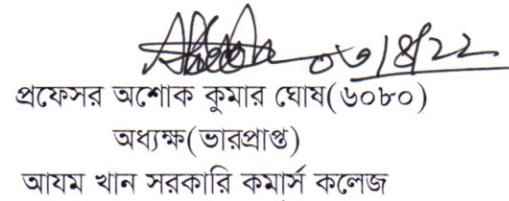 ০৬/৪/২২
প্রফেসর অশোক কুমার ঘোষ(৬০৮০)
অধ্যক্ষ(ভারপ্রাপ্ত)
আযম খান সরকারি কমার্স কলেজ